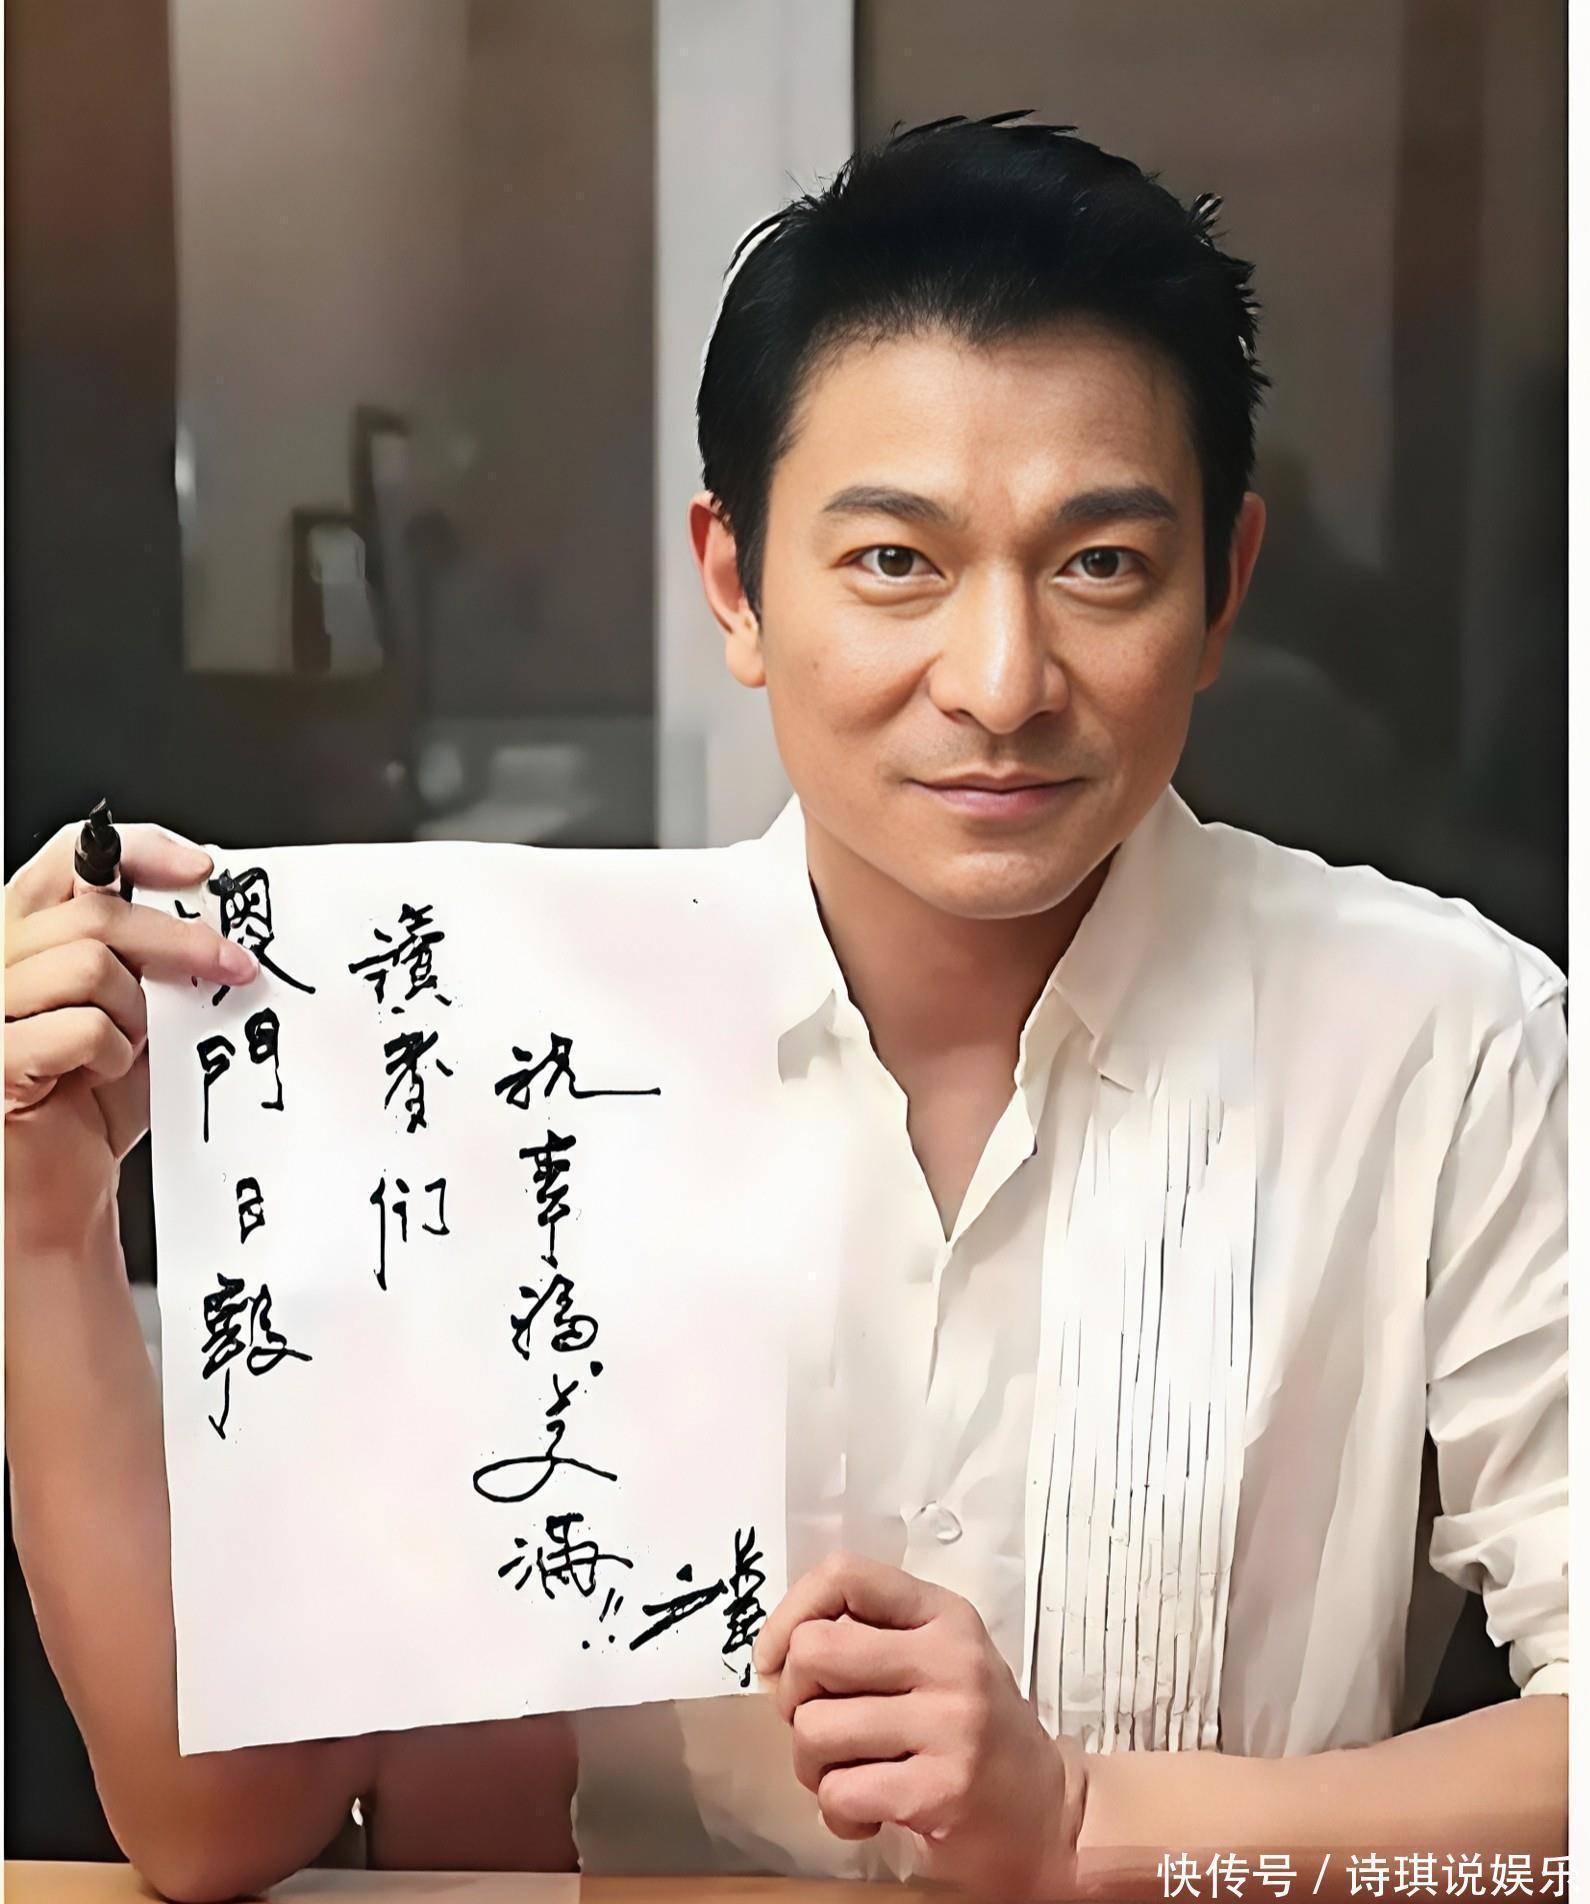 澳門日報
讀者們
祝幸福美滿!!
快传号/诗琪说娱乐